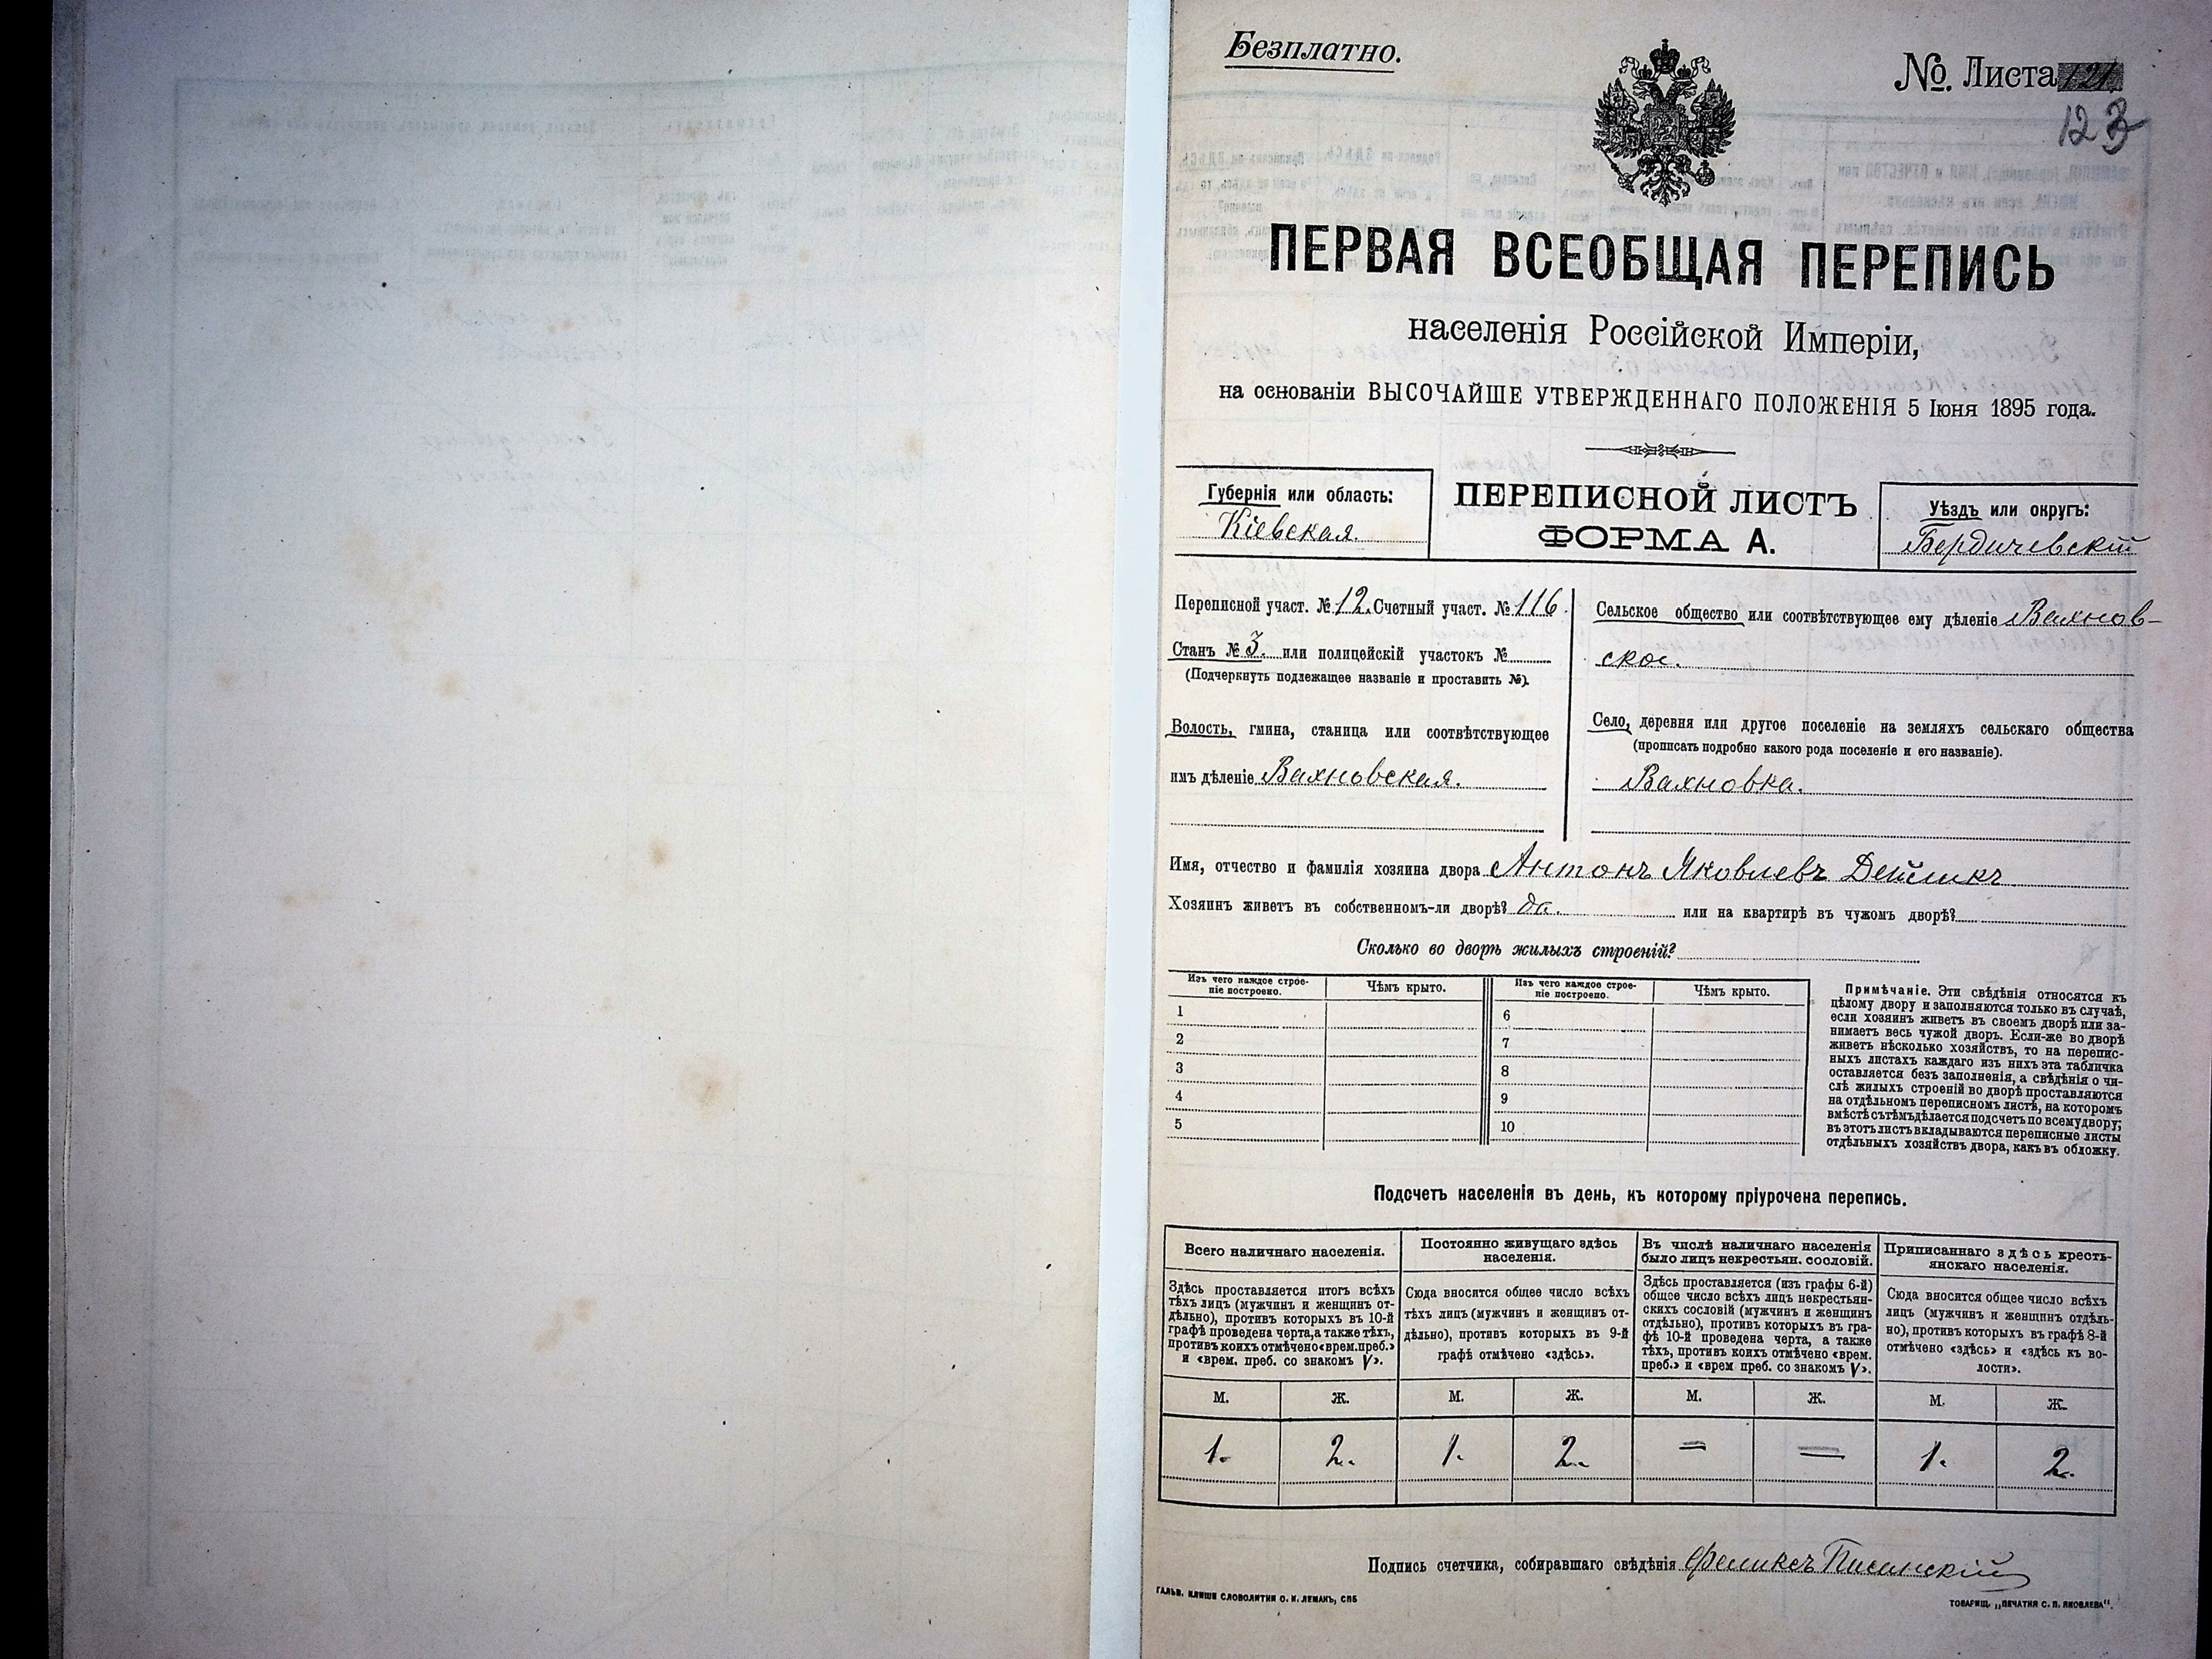 Безплатно.
№. Листа 121.
123
ПЕРВАЯ ВСЕОБЩАЯ ПЕРЕПИСЬ
населенія Россійской Имперіи,
на основаніи ВЫСОЧАЙШЕ УТВЕРЖДЕННАГО ПОЛОЖЕНІЯ 5 Іюня 1895 года.
Губернія или область:
Кіевская.
ПЕРЕПИСНОЙ ЛИСТЪ
ФОРМА А.
Уѣздъ или округъ:
Бердичевскій
Переписной участ. № 12. Счетный участ. № 116.
Станъ № 3. или полицейскій участокъ №
(Подчеркнуть подлежащее названіе и проставить №).
Волость, гмина, станица или соотвѣтствующее
имъ дѣленіе Вахновская.
Сельское общество или соотвѣтствующее ему дѣленіе Вахнов-
ское.
Село, деревня или другое поселеніе на земляхъ сельскаго общества
(прописать подробно какого рода поселеніе и его названіе).
Вахновка.
Имя, отчество и фамилія хозяина двора Антонъ Яковлевъ
Хозяинъ живетъ въ собственномъ-ли дворѣ? да. или на квартирѣ въ чужомъ дворѣ?
Сколько во дворѣ жилыхъ строеній?
Изъ чего каждое строе-
ніе построено.
Чѣмъ крыто.
Изъ чего каждое строе-
ніе построено.
Чѣмъ крыто.
1 6
2 7
3 8
4 9
5 10
Примѣчаніе. Эти свѣдѣнія относятся къ
цѣлому двору и заполняются только въ случаѣ,
если хозяинъ живетъ въ своемъ дворѣ или за-
нимаетъ весь чужой дворъ. Если-же во дворѣ
живетъ нѣсколько хозяйствъ, то на перепис-
ныхъ листахъ каждаго изъ нихъ эта табличка
оставляется безъ заполненія, а свѣдѣнія о чи-
слѣ жилыхъ строеній во дворѣ проставляются
на отдѣльномъ переписномъ листѣ, на которомъ
вмѣстѣ съ тѣмъ дѣлается подсчетъ по всему двору;
въ этотъ листъ вкладываются переписные листы
отдѣльныхъ хозяйствъ двора, какъ въ обложку.
Подсчетъ населенія въ день, къ которому пріурочена перепись.
Всего наличнаго населенія.
Здѣсь проставляется итогъ всѣхъ
тѣхъ лицъ (мужчинъ и женщинъ от-
дѣльно), противъ которыхъ въ 10-й
графѣ проведена черта, а также тѣхъ,
противъ коихъ отмѣчено «врем. преб.»
и «врем. преб. со знакомъ V».
Постоянно живущаго здѣсь
населенія.
Сюда вносится общее число всѣхъ
тѣхъ лицъ (мужчинъ и женщинъ от-
дѣльно), противъ которыхъ въ 9-й
графѣ отмѣчено «здѣсь».
Въ числѣ наличнаго населенія
было лицъ некрестьян. сословій.
Здѣсь проставляется (изъ графы 6-й)
общее число всѣхъ лицъ некрестьян-
скихъ сословій (мужчинъ и женщинъ
отдѣльно), противъ которыхъ въ гра-
фѣ 10-й проведена черта, а также
тѣхъ, противъ коихъ отмѣчено «врем.
преб.» и «врем преб. со знакомъ V».
Приписаннаго здѣсь кресть-
янскаго населенія.
Сюда вносится общее число всѣхъ
лицъ (мужчинъ и женщинъ отдѣль-
но), противъ которыхъ въ графѣ 8-й
отмѣчено «здѣсь» и «здѣсь къ во-
лости».
М. Ж. М. Ж. М. Ж. М. Ж.
1. 2. 1. 2. — — 1. 2.
Подпись счетчика, собиравшаго свѣдѣнія Феликсъ Писанскій
ГАЛЬВ. КЛИШИ СЛОВОЛИТНИ О. И. ЛЕМАНЪ, СПБ
ТОВАРИЩ. „ПЕЧАТНЯ С. П. ЯКОВЛЕВА“.